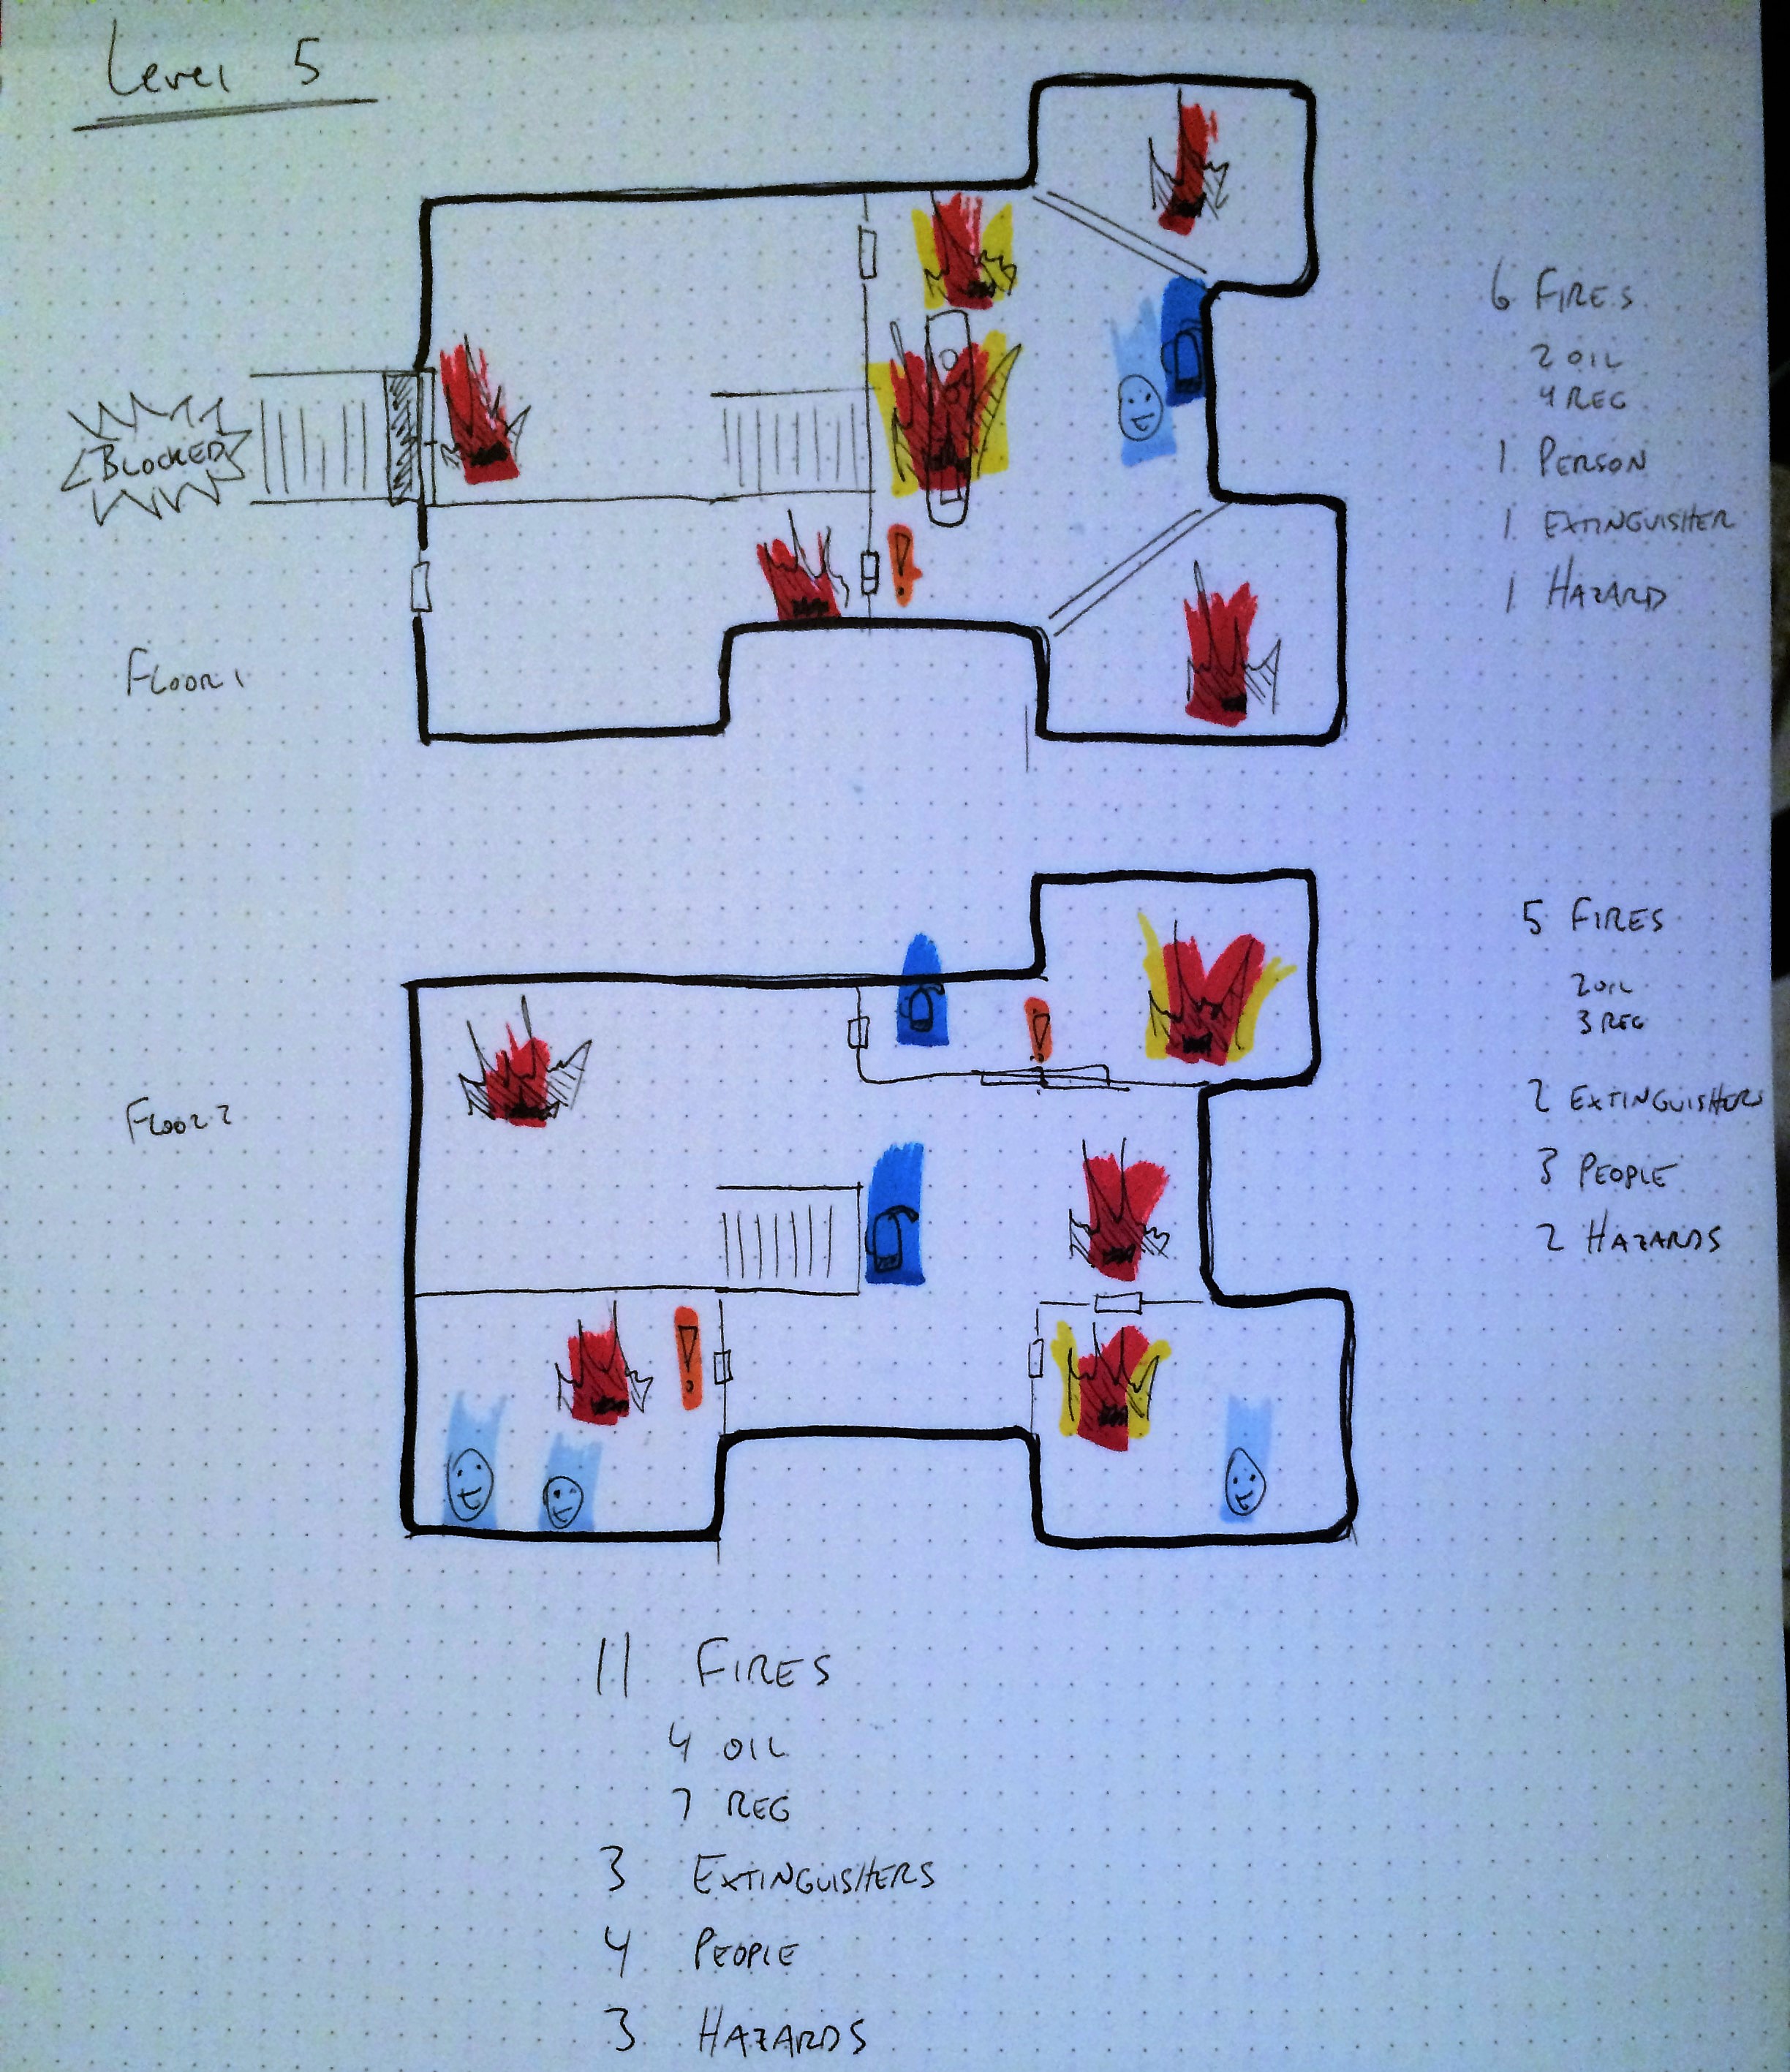 Level 5
6 FIRES
2 OIL
4 REG
BLOCKED
1 PERSON
1 EXTINGUISHER
!
1 HAZARD
FLOOR 1
5 FIRES
2 OIL
!
3 REG
2 EXTINGUISHERS
FLOOR 2
3 PEOPLE
2 HAZARDS
!
11 FIRES
4 OIL
7 REG
3 EXTINGUISHERS
4 PEOPLE
3 HAZARDS